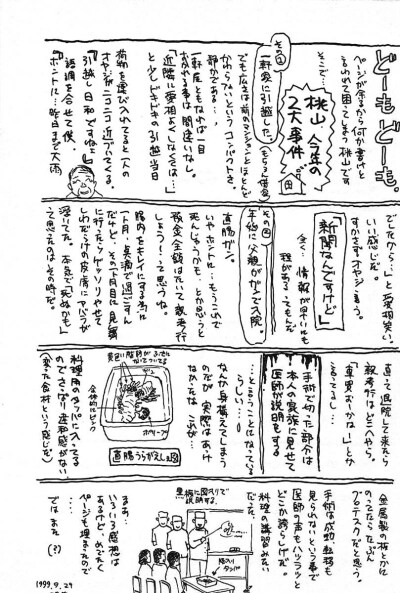 どーもどーも。
ページが余るから何か書けと
言われて困ってしまう桃山です
そこで…
桃山 今年の
2大事件。
その①
一軒家に引越した。
でも広さは前のマンションとほとんど
かわらないというコンパクトさ。
部かである…。
一軒屋ともなれば一目
おかれる事は間違いなし。
「近隣に愛想よくしなくては…」
と少しドキドキの引越し当日
荷物を運び入れてると一人の
オヤジがニコニコ近づいてくる。
「引越し日和ですねー。」
語調を合せて僕、
「ホントに…昨日まで大雨
でしたから…」と愛想笑い。
いい感じだ。
すかさずオヤジ言う。
「新聞なんですけど」
全く、情報が早いにも
程があるってもんだ
その②
年始に父親がガンで入院。
直腸ガン。
いやーホント…もうこいつで
死んじゃうかも。とか思うと
しょうく…って思うね。
預金全額はたいて親孝行
腸内をキレイにする為に
一ヶ月、点滴で過ごすん
だけど、その二ヶ月目に見舞
に行ったら、ゲッソリやせて
しわだらけの皮膚にアバラが
浮いてた。本気で死ぬかも
って思ったのはその時だ。
直って退院して来たら
親孝行はどこへやら。
「真実おーかね!」とか
言ってるし…
手術で切った部分は
本人の家族に見せて
医師が説明をする
…と言うことになっている
らしい…!
なかなか身構えてしまう
のだが、実際はあっけ
なかった。これが…
黄色い脂肪が
ついている
全体的にピンク
ホウレーソー
直腸うらがえし図
料理用のタッパに入ってる
のでさっぱり違和感がない
(変った食材という感じだ)
金属製の板とかに
のってたらたぶん
グロテスクだと思う。
手術は成功、転移も
見られないという事で
医師の声もハツラツと
どこか誇らしげだ。
料理の講習みたい
だった。
黒板に図入りで
説明する
腸入り
タッパ
まあ
いろいろ感想は
あるけど、めでたく
ページも埋まったので
…
ではまた(?)
1999.9.29